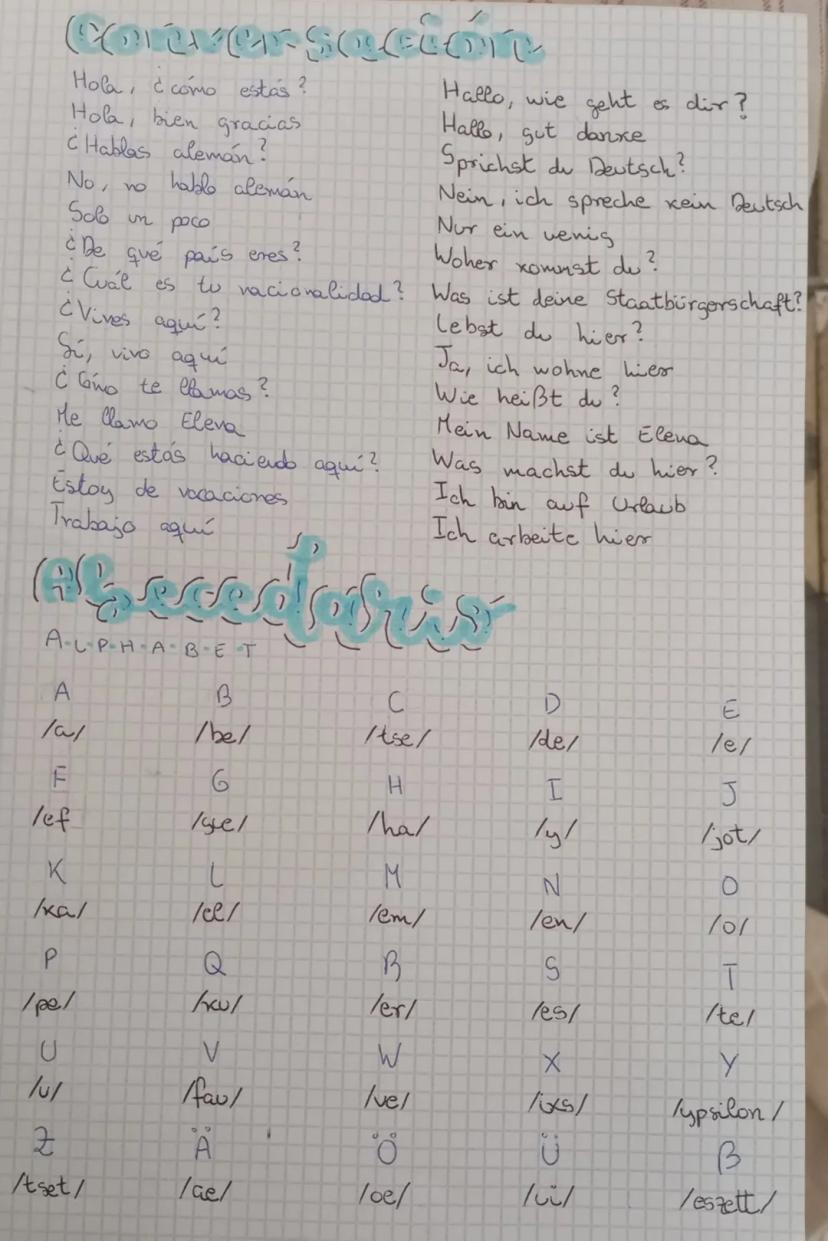 Conversación
Hola, ¿cómo estás? Hallo, wie geht es dir?
Hola, bien gracias Hallo, gut danke
¿Hablas alemán? Sprichst du Deutsch?
No, no hablo alemán Nein, ich spreche kein Deutsch
Solo un poco Nur ein wenig
¿De qué país eres? Woher kommst du?
¿Cuál es tu nacionalidad? Was ist deine Staatbürgerschaft?
¿Vives aquí? Lebst du hier?
Sí, vivo aquí Ja, ich wohne hier
¿Cómo te llamas? Wie heißt du?
Me llamo Elena Mein Name ist Elena
¿Qué estás haciendo aquí? Was machst du hier?
Estoy de vacaciones Ich bin auf Urlaub
Trabajo aquí Ich arbeite hier
Abecedario
A-L-P-H-A-B-E-T
A B C D E
/a/ /be/ /tse/ /de/ /e/
F G H I J
/ef /gue/ /ha/ /y/ /jot/
K L M N O
/ka/ /el/ /em/ /en/ /o/
P Q R S T
/pe/ /ku/ /er/ /es/ /te/
U V W X Y
/u/ /fau/ /ve/ /ixs/ /ypsilon/
Z Ä Ö Ü ß
/tset/ /ae/ /oe/ /üi/ /eszett/